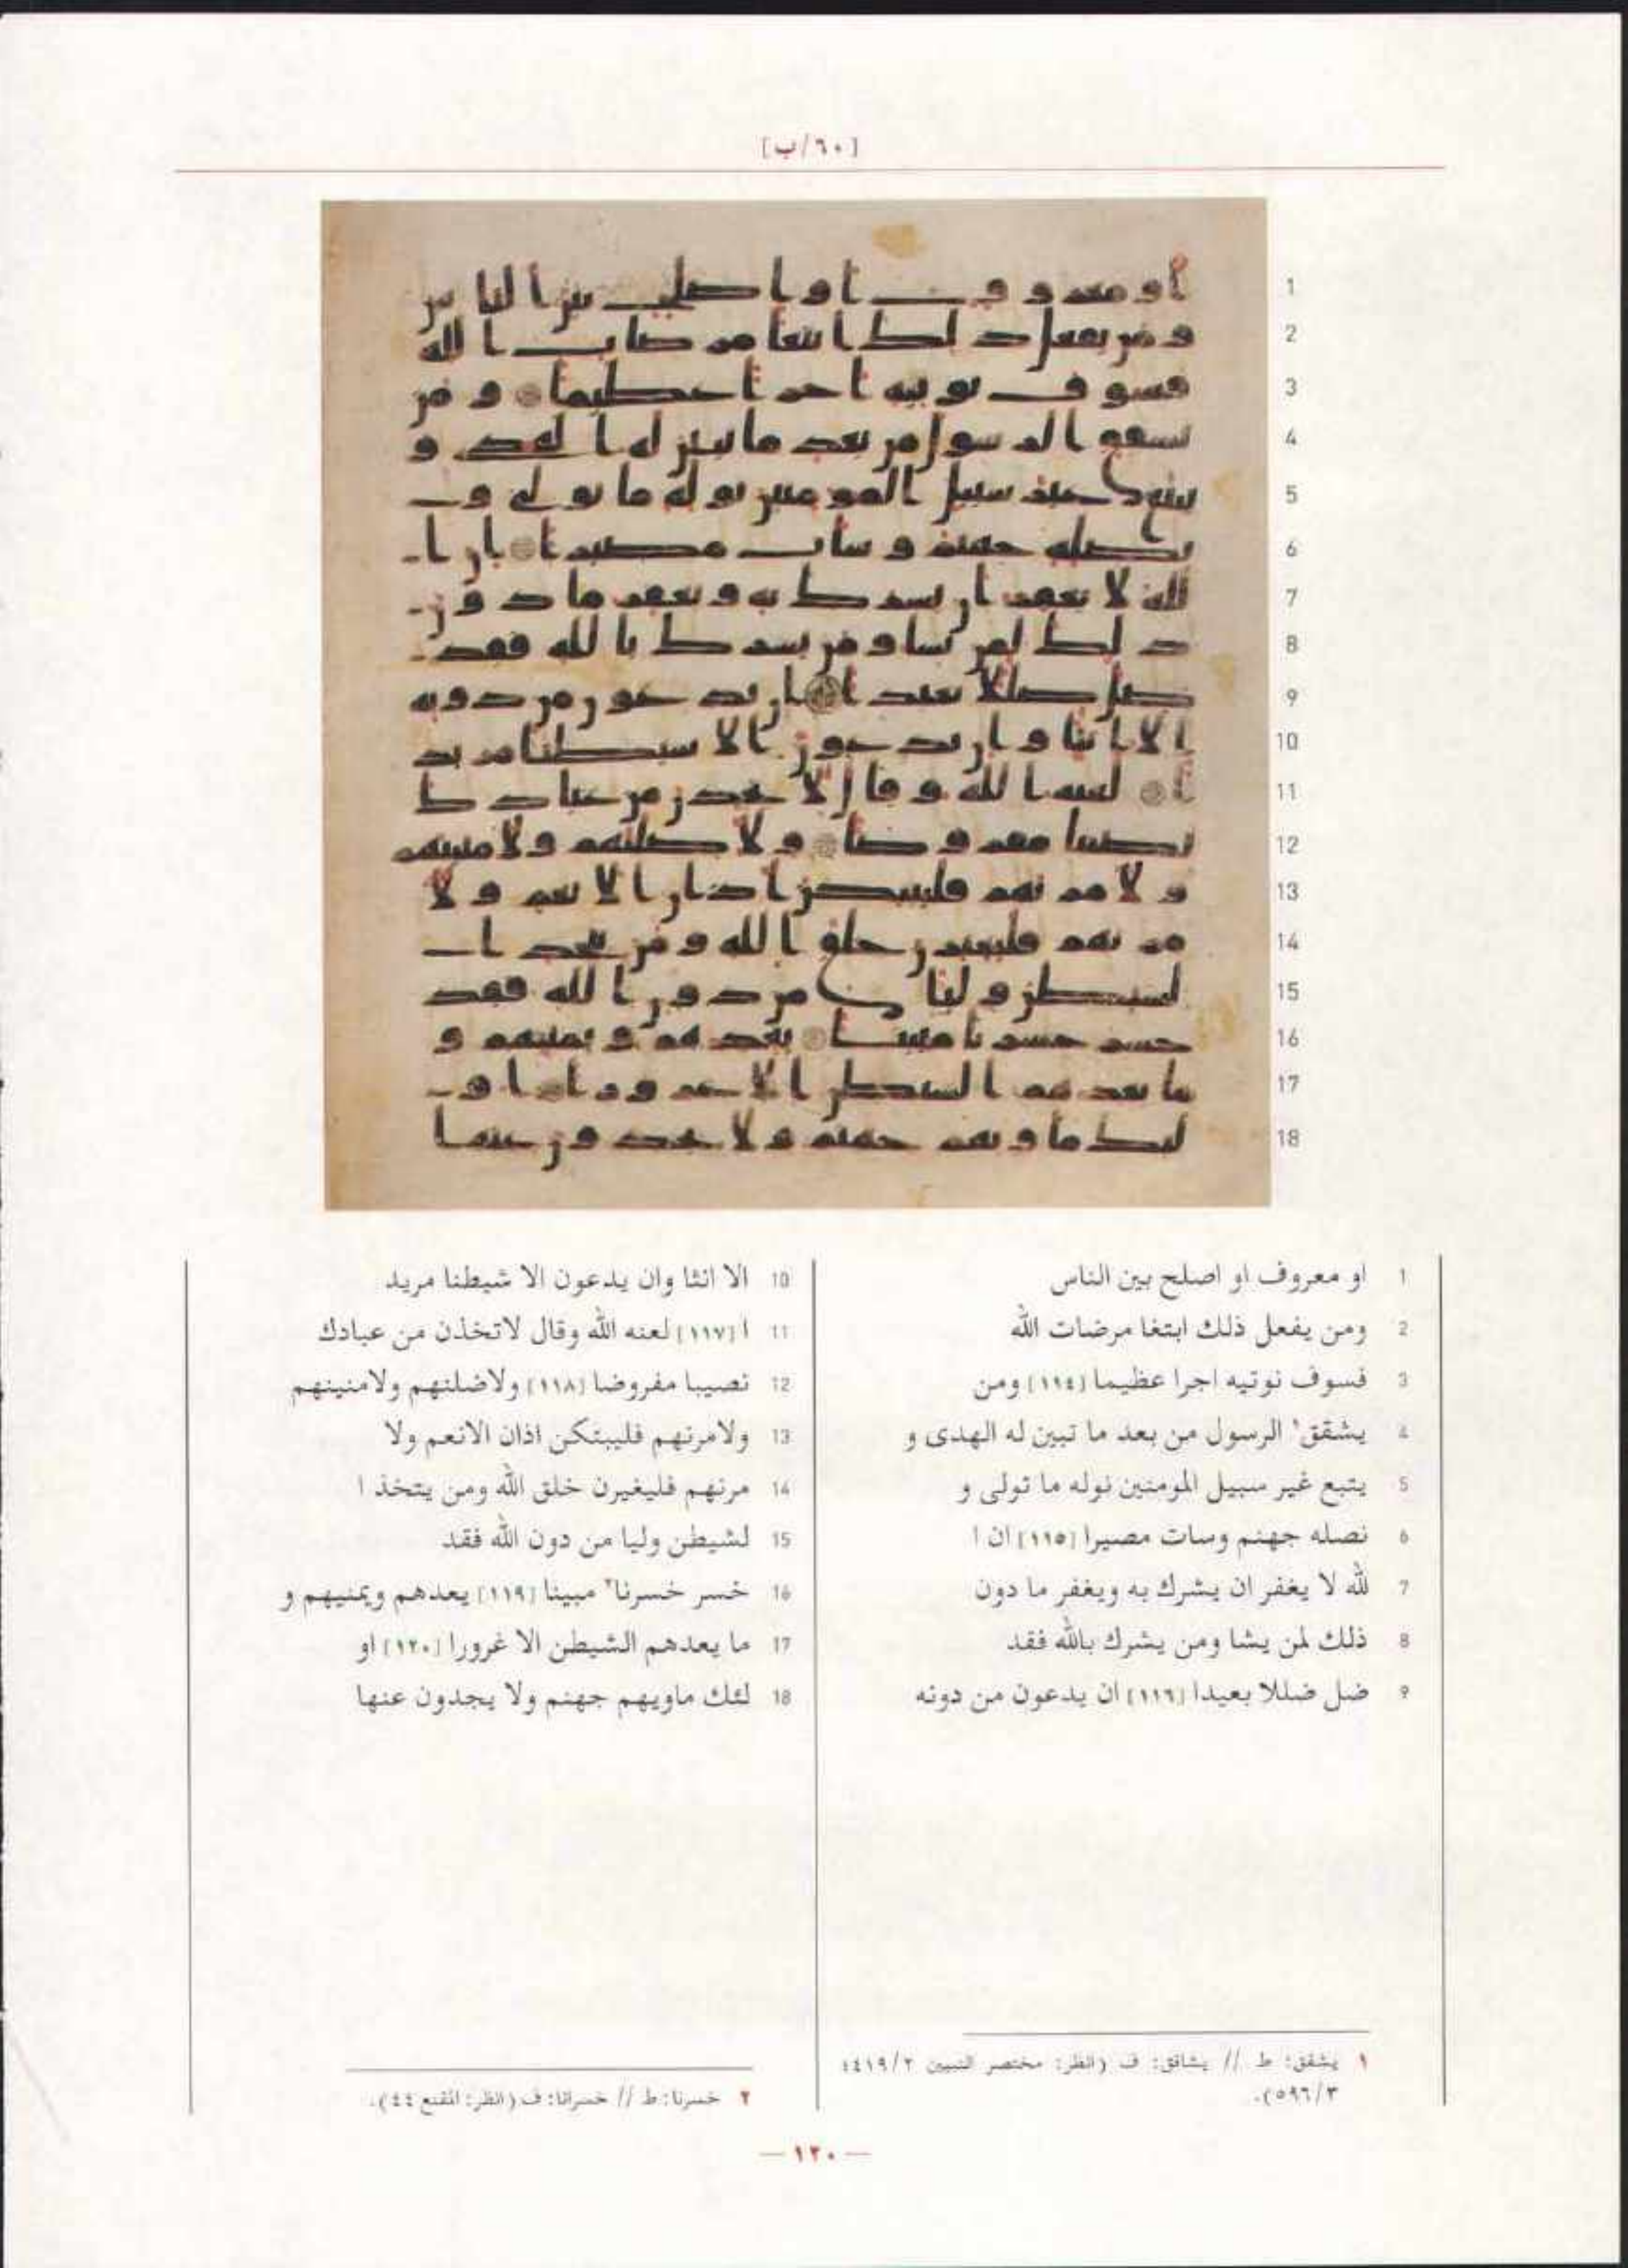 [٦٠/ب]
1 او معروف او اصلح بين الناس
2 ومن يفعل ذلك ابتغا مرضات الله
3 فسوف نوتيه اجرا عظيما [١١٤] ومن
4 يشقق١ الرسول من بعد ما تبين له الهدى و
5 يتبع غير سبيل المومنين نوله ما تولى و
6 نصله جهنم وسات مصيرا [١١٥] ان ا
7 لله لا يغفر ان يشرك به ويغفر ما دون
8 ذلك لمن يشا ومن يشرك بالله فقد
9 ضل ضللا بعيدا [١١٦] ان يدعون من دونه
10 الا انثا وان يدعون الا شيطنا مريد
11 ا [١١٧] لعنه الله وقال لاتخذن من عبادك
12 نصيبا مفروضا [١١٨] ولاضلنهم ولامنينهم
13 ولامرنهم فليبتكن اذان الانعم ولا
14 مرنهم فليغيرن خلق الله ومن يتخذ ا
15 لشيطن وليا من دون الله فقد
16 خسر خسرنا٢ مبينا [١١٩] يعدهم ويمنيهم و
17 ما يعدهم الشيطن الا غرورا [١٢٠] او
18 لئك ماويهم جهنم ولا يجدون عنها
١ يشقق: ط // يشاقق: ف (انظر: مختصر التبيين ٢/٤١٩؛
٣/٥٩٦).
٢ خسرنا: ط // خسرانا: ف (انظر: المقنع ٤٤).
— ١٢٠ —